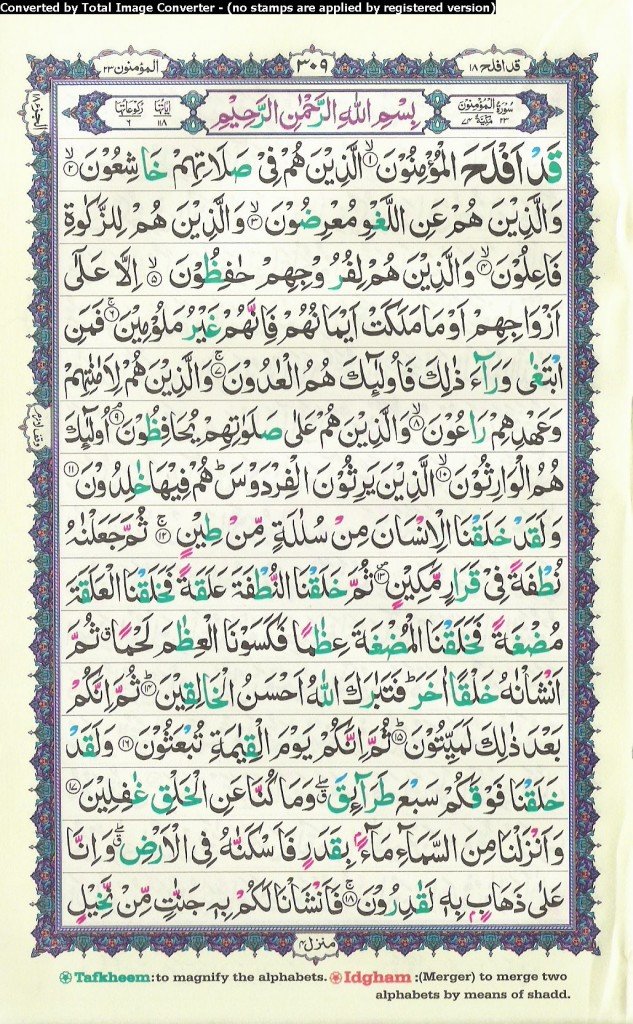 Converted by Total Image Converter - (no stamps are applied by registered version)
المؤمنون ٢٣
٣٠٩
قد افلح ١٨
الجزء ١٨
اٰیاتها ١١٨ رکوعاتها ٦
بِسْمِ اللهِ الرَّحْمٰنِ الرَّحِيْمِ
سُوْرَةُ الْمُؤْمِنُوْنَ ٢٣ مَكِّيَّةٌ ٧٤
قَدْ اَفْلَحَ الْمُؤْمِنُوْنَ ۙ﴿١﴾ الَّذِيْنَ هُمْ فِيْ صَلَاتِهِمْ خَاشِعُوْنَ ۙ﴿٢﴾
وَالَّذِيْنَ هُمْ عَنِ اللَّغْوِ مُعْرِضُوْنَ ۙ﴿٣﴾ وَالَّذِيْنَ هُمْ لِلزَّكٰوةِ
فَاعِلُوْنَ ۙ﴿٤﴾ وَالَّذِيْنَ هُمْ لِفُرُوْجِهِمْ حٰفِظُوْنَ ۙ﴿٥﴾ اِلَّا عَلٰٓى
اَزْوَاجِهِمْ اَوْ مَا مَلَكَتْ اَيْمَانُهُمْ فَاِنَّهُمْ غَيْرُ مَلُوْمِيْنَ ۚ﴿٦﴾ فَمَنِ
ابْتَغٰى وَرَآءَ ذٰلِكَ فَاُولٰٓئِكَ هُمُ الْعٰدُوْنَ ۚ﴿٧﴾ وَالَّذِيْنَ هُمْ لِاَمٰنٰتِهِمْ
وَعَهْدِهِمْ رَاعُوْنَ ۙ﴿٨﴾ وَالَّذِيْنَ هُمْ عَلٰى صَلَوٰتِهِمْ يُحَافِظُوْنَ ۘ﴿٩﴾ اُولٰٓئِكَ
هُمُ الْوَارِثُوْنَ ۙ﴿١٠﴾ الَّذِيْنَ يَرِثُوْنَ الْفِرْدَوْسَ ؕ هُمْ فِيْهَا خٰلِدُوْنَ ﴿١١﴾
وَلَقَدْ خَلَقْنَا الْاِنْسَانَ مِنْ سُلٰلَةٍ مِّنْ طِيْنٍ ۚ﴿١٢﴾ ثُمَّ جَعَلْنٰهُ
نُطْفَةً فِيْ قَرَارٍ مَّكِيْنٍ ۪﴿١٣﴾ ثُمَّ خَلَقْنَا النُّطْفَةَ عَلَقَةً فَخَلَقْنَا الْعَلَقَةَ
مُضْغَةً فَخَلَقْنَا الْمُضْغَةَ عِظٰمًا فَكَسَوْنَا الْعِظٰمَ لَحْمًا ۗ ثُمَّ
اَنْشَاْنٰهُ خَلْقًا اٰخَرَ ؕ فَتَبٰرَكَ اللهُ اَحْسَنُ الْخَالِقِيْنَ ؕ﴿١٤﴾ ثُمَّ اِنَّكُمْ
بَعْدَ ذٰلِكَ لَمَيِّتُوْنَ ؕ﴿١٥﴾ ثُمَّ اِنَّكُمْ يَوْمَ الْقِيٰمَةِ تُبْعَثُوْنَ ﴿١٦﴾ وَلَقَدْ
خَلَقْنَا فَوْقَكُمْ سَبْعَ طَرَآئِقَ ۖ وَمَا كُنَّا عَنِ الْخَلْقِ غٰفِلِيْنَ ﴿١٧﴾
وَاَنْزَلْنَا مِنَ السَّمَآءِ مَآءًۢ بِقَدَرٍ فَاَسْكَنّٰهُ فِي الْاَرْضِ ۖ وَاِنَّا
عَلٰى ذَهَابٍۢ بِهٖ لَقٰدِرُوْنَ ۚ﴿١٨﴾ فَاَنْشَاْنَا لَكُمْ بِهٖ جَنّٰتٍ مِّنْ نَّخِيْلٍ
منزل ٤
Tafkheem:to magnify the alphabets. Idgham :(Merger) to merge two
alphabets by means of shadd.